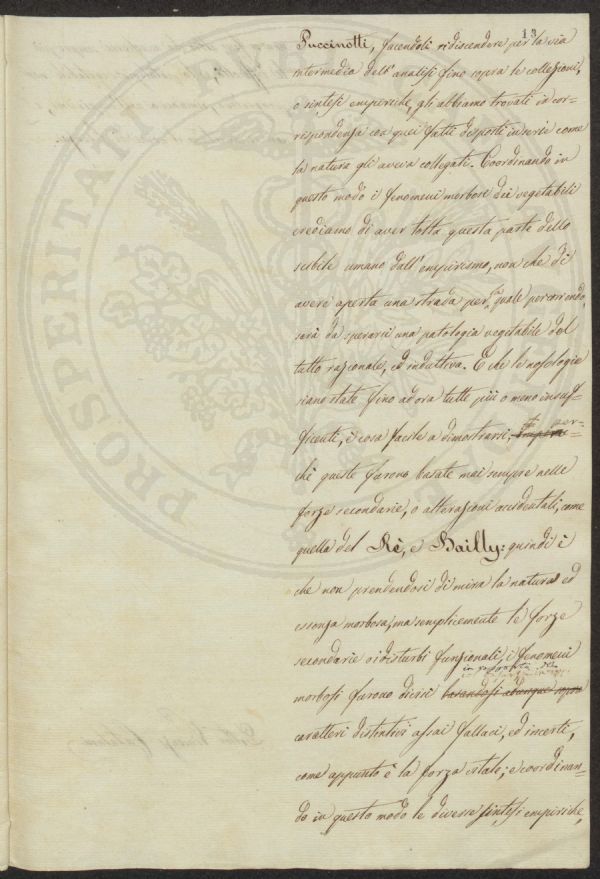 13
Puccinotti, facendoli ridiscendere per la via
intermedia dell'analisi fino sopra le collezioni,
o sintesi empiriche, gli abbiamo trovati in cor-
rispondenza con quei fatti disposti insieme come
la natura gli aveva collegati. Coordinando in
questo modo i fenomeni morbosi dei vegetabili
crediamo di aver tolta questa parte dello
scibile umano dall'empirismo, non che di
avere aperta una strada per la quale percorrendo,
sarà da sperarsi una patologia vegetabile del
tutto razionale, ed induttiva. E che le nosologie
siano state fino ad ora tutte più o meno insuf-
ficienti, è cosa facile a dimostrarsi, per-
chè queste furono basate mai sempre nelle
forze secondarie, o alterazioni accidentali, come
quella del Rè, e Bailly: quindi è
che non prendendosi di mira la natura ed
essenza morbosa, ma semplicemente le forze
secondarie o i disturbi funzionali, i fenomeni
in
morbosi furono divisi basandosi adunque sopra
caratteri distintivi assai fallaci, ed incerti,
come appunto è la forza vitale; e coordinan-
do in questo modo le diverse sintesi empiriche,
PROSPERITATI